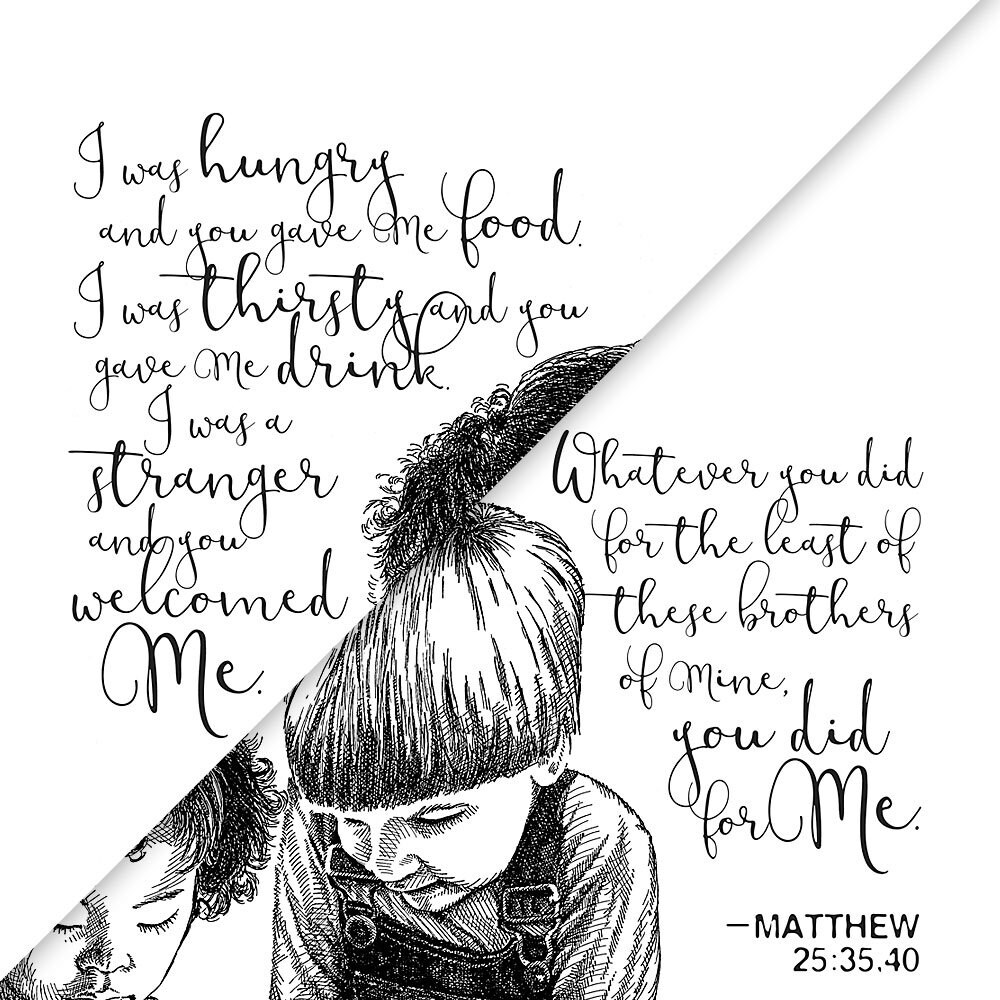 I was hungry
and you gave Me food.
I was thirsty and you
gave Me drink.
I was a
stranger
and you
welcomed
Me.
Whatever you did
for the least of
these brothers
of Mine,
you did
for Me.
—MATTHEW
25:35,40